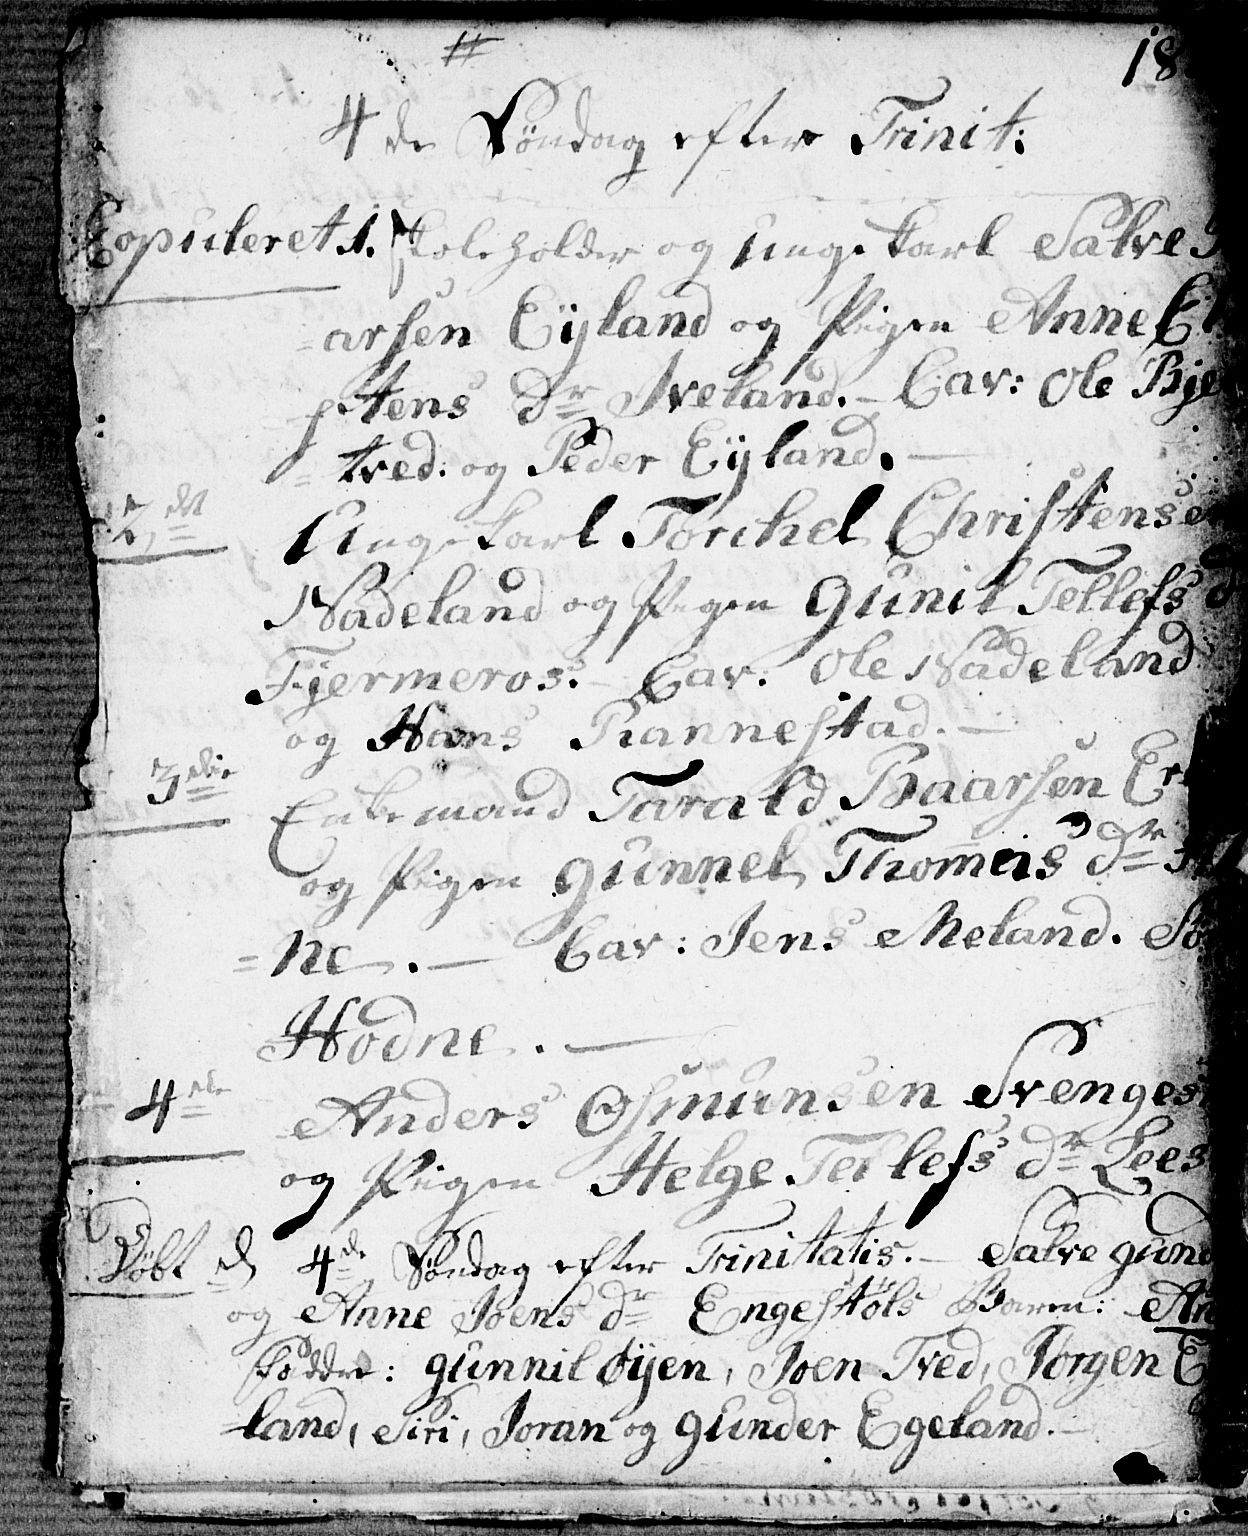 18
4de Søndag efter Trinit:
Copuleret 1. Skoleholder og Ungekarl Salve
=arsen Eÿland og Pigen Anne
=stens dr Iveland. – Cav: Ole
=tved: og Peder Eÿland. –
2det Ungekarl Torchel Christensen
Nadeland og Pigen Gunil Tellefs d
Fjermeros. – Cav: Ole Nadeland
og Hans Rannestad. –
3die Enkemand Tarald Baarsen
og Pigen Gunnel Thomeis dr
=ne. – Cav: Jens Meland.
Hodne. –
4de Anders Osmunsen
og Pigen Helge Tellefs dr
Døbt d 4de Søndag efter Trinitatis. – Salve
og Anne Joens dr Engestøls Barn:
Faddre: Gunnil Øÿen, Joen Tved, Jørgen
=land, Siri, Joran og Gunder Egeland. –